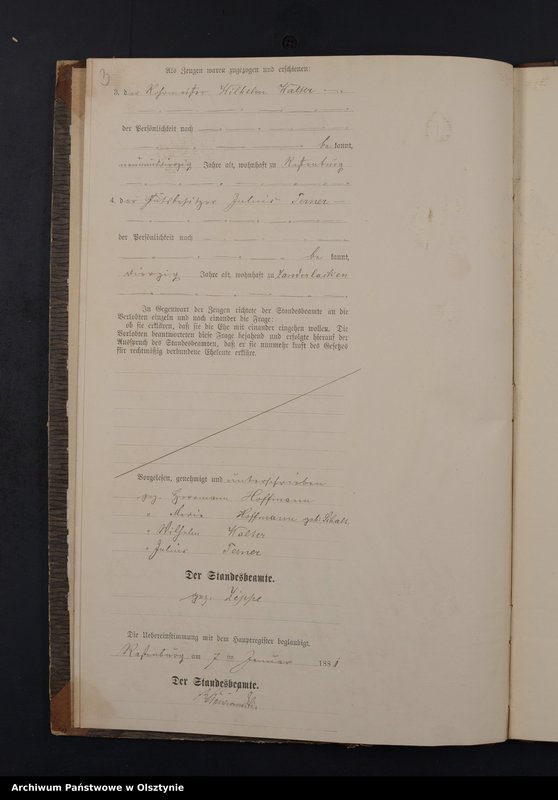 3
Als Zeugen waren zugezogen und erschienen:
3. der Wilhelm Walter
der Persönlichkeit nach
bekannt,
neunundvierzig Jahre alt, wohnhaft zu Rastenburg
4. der Gutsbesitzer Julius Terner
der Persönlichkeit nach
bekannt,
vierzig Jahre alt, wohnhaft zu Zanderlacken
In Gegenwart der Zeugen richtete der Standesbeamte an die
Verlobten einzeln und nach einander die Frage:
ob sie erklären, daß sie die Ehe mit einander eingehen wollen. Die
Verlobten beantworteten diese Frage bejahend und erfolgte hierauf der
Ausspruch des Standesbeamten, daß er sie nunmehr kraft des Gesetzes
für rechtmäßig verbundene Eheleute erkläre.
Vorgelesen, genehmigt und unterschrieben
gez. Herrmann Hoffmann
" Marie Hoffmann geb.
" Wilhelm Walter
" Julius Terner
Der Standesbeamte.
gez. Zippe
Die Uebereinstimmung mit dem Hauptregister beglaubigt.
Rastenburg am 7ten Januar 1881
Der Standesbeamte.
Archiwum Państwowe w Olsztynie